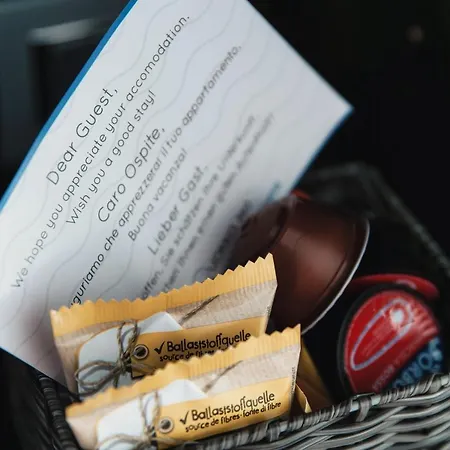 Dear Guest,
We hope you appreciate your accomodation.
Wish you a good stay!
Caro Ospite,
guriamo che apprezzerai il tuo appartamento.
Buona vacanza!
Lieber Gast,
ffen, Sie schätzen Ihre Unterkunft.
Ihnen einen guten Aufenthalt!
Ballasistoffquelle
source de fibres
Ballasistoffquelle
source de fibres · fonte di fibre